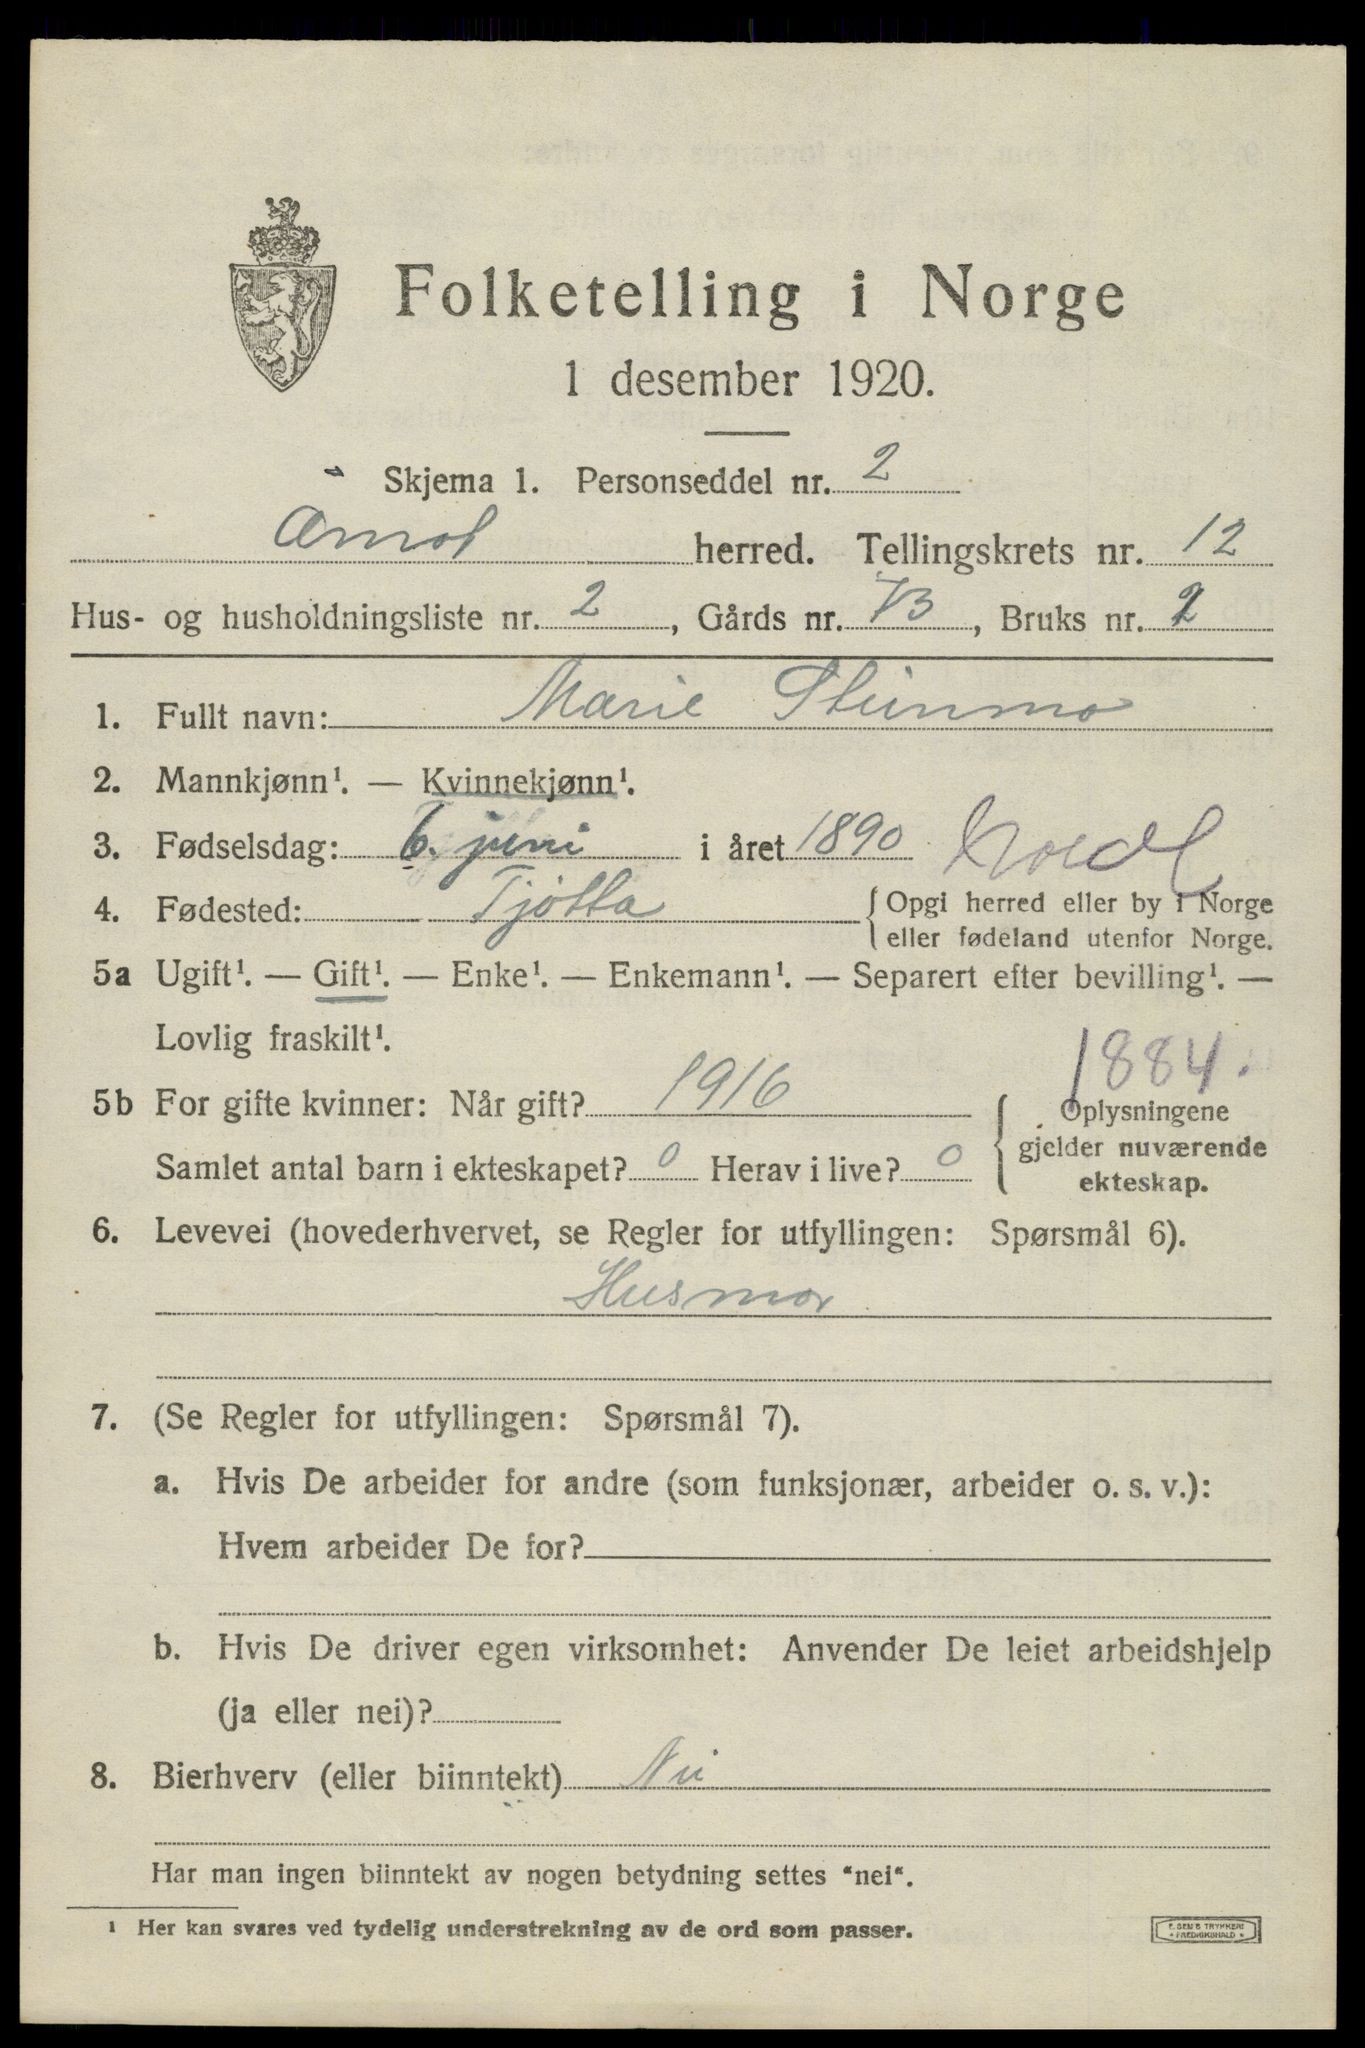 Folketelling i Norge
1 desember 1920.
Skjema 1. Personseddel nr. 2
Åmot herred. Tellingskrets nr. 12
Hus- og husholdningsliste nr. 2, Gårds nr. 73, Bruks nr. 2
1. Fullt navn: Marie Steinmo
2. Mannkjønn¹. — Kvinnekjønn¹.
3. Fødselsdag: 6. juni i året 1890 Nordl
4. Fødested: Tjøtta { Opgi herred eller by i Norge
eller fødeland utenfor Norge.
5a Ugift¹. — Gift¹. — Enke¹. — Enkemann¹. — Separert efter bevilling¹. —
Lovlig fraskilt¹.
1884.
5b For gifte kvinner: Når gift? 1916 { Oplysningene
gjelder nuværende
Samlet antal barn i ekteskapet? 0 Herav i live? 0
ekteskap.
6. Levevei (hovederhvervet, se Regler for utfyllingen: Spørsmål 6).
Husmor
7. (Se Regler for utfyllingen: Spørsmål 7).
a. Hvis De arbeider for andre (som funksjonær, arbeider o. s. v.):
Hvem arbeider De for?
b. Hvis De driver egen virksomhet: Anvender De leiet arbeidshjelp
(ja eller nei)?
8. Bierhverv (eller biinntekt) Nei
Har man ingen biinntekt av nogen betydning settes "nei".
¹ Her kan svares ved tydelig understrekning av de ord som passer.
E. SEM'S TRYKKERI
FREDRIKSHALD